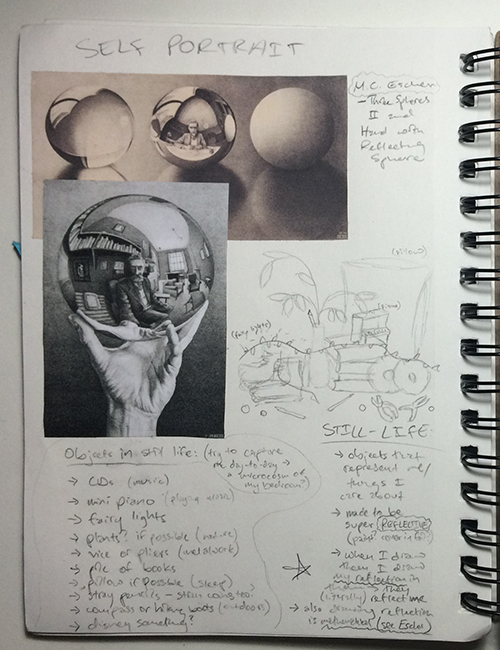 SELF PORTRAIT
M.C. Escher
- Three Spheres
II and
Hand with
Reflecting
Sphere
(pillow)
(piano)
(fairy lights)
STILL-LIFE.
Objects in still life: (try to capture
me day-to-day →
→ CDs (music)
microcosm of
my bedroom?)
→ mini piano (playing music)
→ fairy lights
→ plants? if possible (nature)
→ vice or pliers (metalwork)
→ pile of books
→ pillow if possible (sleep)
→ stray pencils
→ compass or hiking boots (outdoors)
→ disney something?
→ objects that
represent me/
things I
care about
→ made to be
super REFLECTIVE
(paint? cover in foil?)
→ when I draw
them I draw
my reflection in
them → they
(literally) reflect me
→ also drawing reflection
is (see Escher)